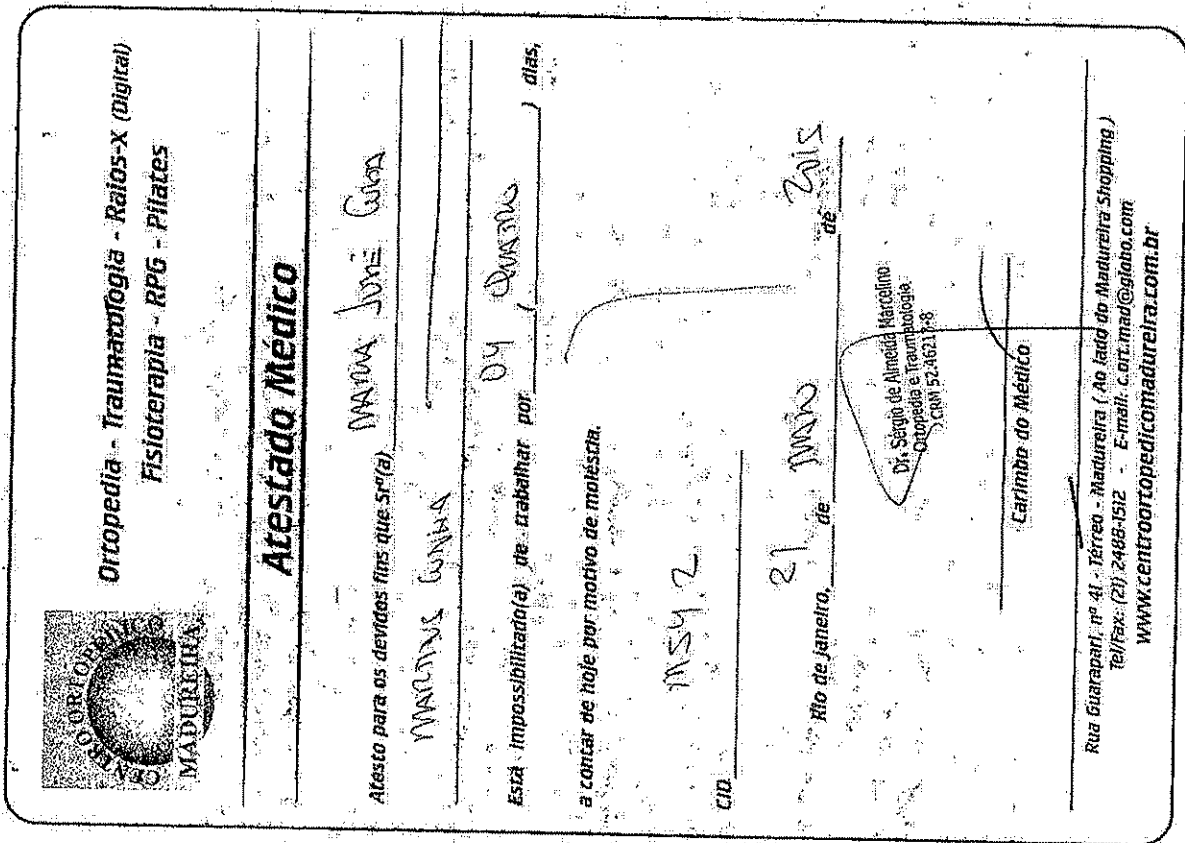 CENTRO ORTOPEDICO
MADUREIRA
Ortopedia - Traumatologia - Raios-X (Digital)
Fisioterapia - RPG - Pilates
Atestado Médico
Atesto para os devidos fins que Srº(a) MARIA
MARTINS CUNHA
Está impossibilitado(a) de trabalhar por 04 ( QUATRO ) dias,
a contar de hoje por motivo de moléstia.
CID M54.2
Rio de Janeiro, 21 de de
Dr. Sérgio de Almeida Marcelino
Ortopedia e Traumatologia
CRM 52.46217-8
Carimbo do Médico
Rua Guarapari, nº 41 - Térreo - Madureira ( Ao lado do Madureira Shopping )
Tel/Fax: (21) 2488-1512 - E-mail: c.ort.mad@globo.com
www.centroortopedicomadureira.com.br